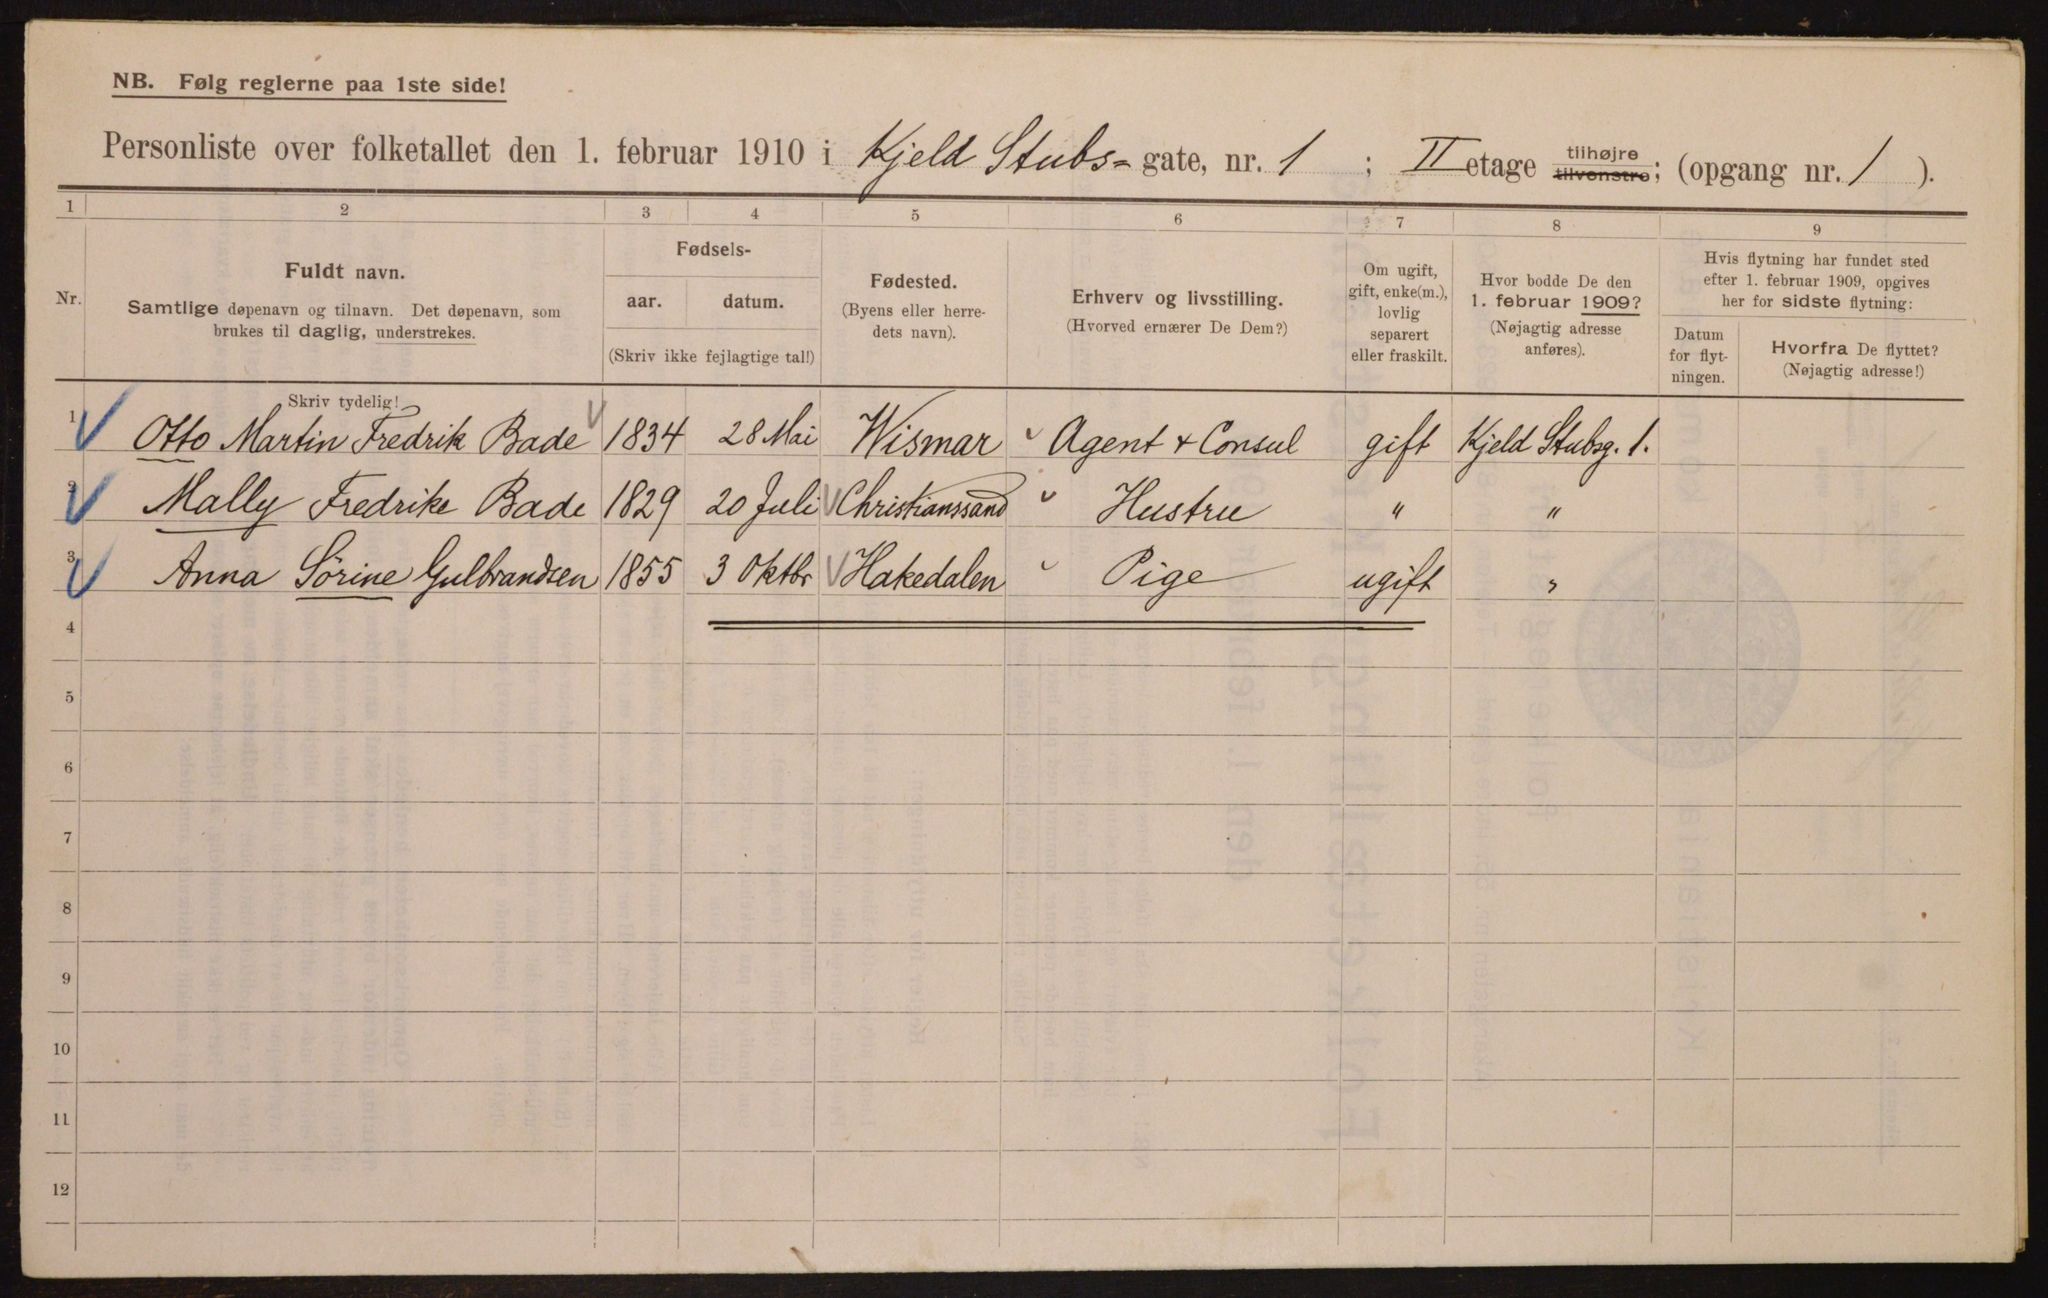 NB. Følg reglerne paa 1ste side!
Personliste over folketallet den 1. februar 1910 i Kjeld Stubs=gate, nr. 1 ; II etage tilhøjre tilvenstre; (opgang nr. 1 ).
1 2 3 4 5 6 7 8 9
Nr.
Fuldt navn.
Samtlige døpenavn og tilnavn. Det døpenavn, som
brukes til daglig, understrekes.
Fødsels-
aar. datum.
(Skriv ikke fejlagtige tal!)
Fødested.
(Byens eller herre-
dets navn).
Erhverv og livsstilling.
(Hvorved ernærer De Dem?)
Om ugift,
gift, enke(m.),
lovlig
separert
eller fraskilt.
Hvor bodde De den
1. februar 1909?
(Nøjagtig adresse
anføres).
Hvis flytning har fundet sted
efter 1. februar 1909, opgives
her for sidste flytning:
Datum
for flyt-
ningen.
Hvorfra De flyttet?
(Nøjagtig adresse!)
Skriv tydelig!
1 Otto Martin Fredrik Bade 1834 28 Mai Wismar Agent + Consul gift Kjeld Stubsg. 1.
2 Mally Fredrike Bade 1829 20 Juli Christianssand Hustru " "
3 Anna Sörine Gulbrandsen 1855 3 Oktbr Hakedalen Pige ugift "
4
5
6
7
8
9
10
11
12